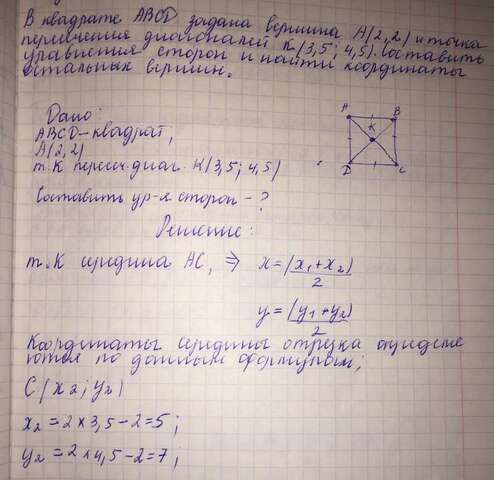 В квадрате ABCD задана вершина A(2,2) и точка
пересечения диагоналей K(3,5; 4,5). Составить
уравнения сторон и найти координаты
остальных вершин.
Дано:
ABCD-квадрат,
A(2,2)
т.K пересеч. диаг. K(3,5; 4,5)
A B
K
D C
Составить ур-я сторон - ?
Решение:
т.K середина AC, ⇒ x = (x₁+x₂)/2
y = (y₁+y₂)/2
Координаты середины отрезка опреде
ются по данным формулам;
C(x₂; y₂)
x₂ = 2 × 3,5 - 2 = 5;
y₂ = 2 × 4,5 - 2 = 7;